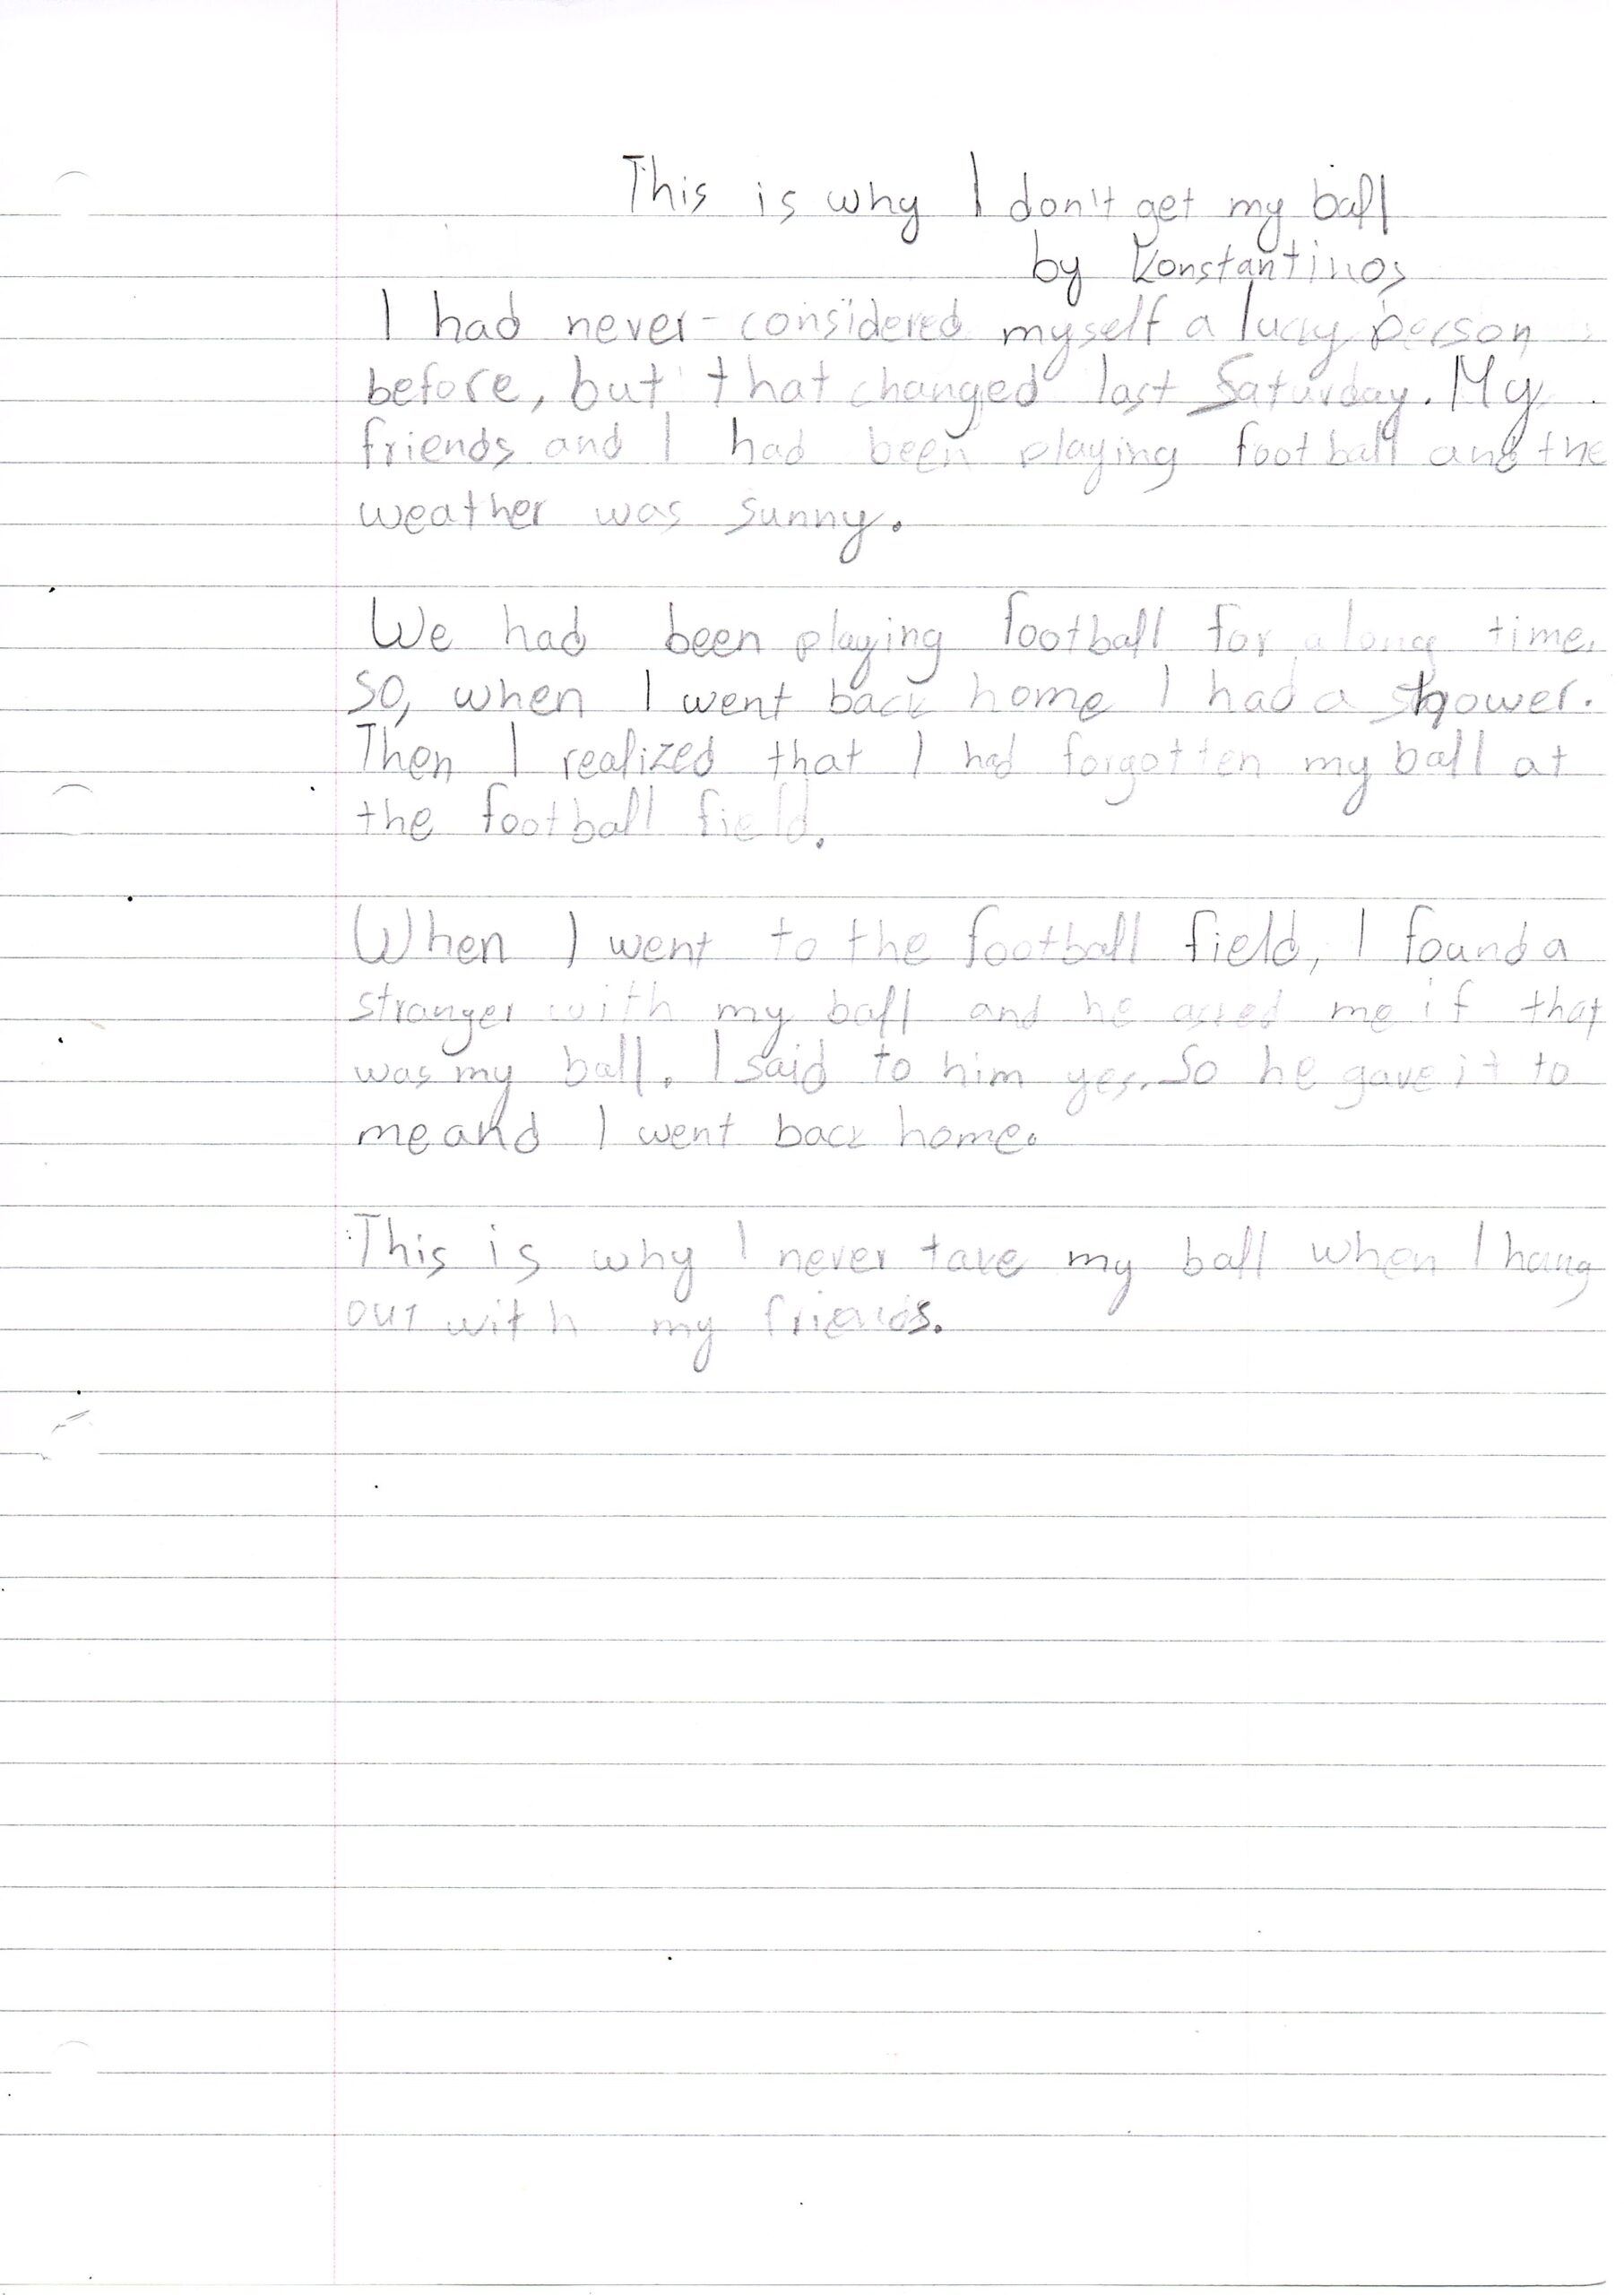 This is why I don't get my ball
by Konstantinos
I had never considered myself a lucky person
before, but that changed last Saturday. My
friends and I had been playing football and the
weather was sunny.
We had been playing football for a long time.
So, when I went back home I had a shower.
Then I realized that I had forgotten my ball at
the football field.
When I went to the football field, I found a
stranger with my ball and he asked me if that
was my ball. I said to him yes. So he gave it to
me and I went back home.
This is why I never take my ball when I hang
out with my friends.